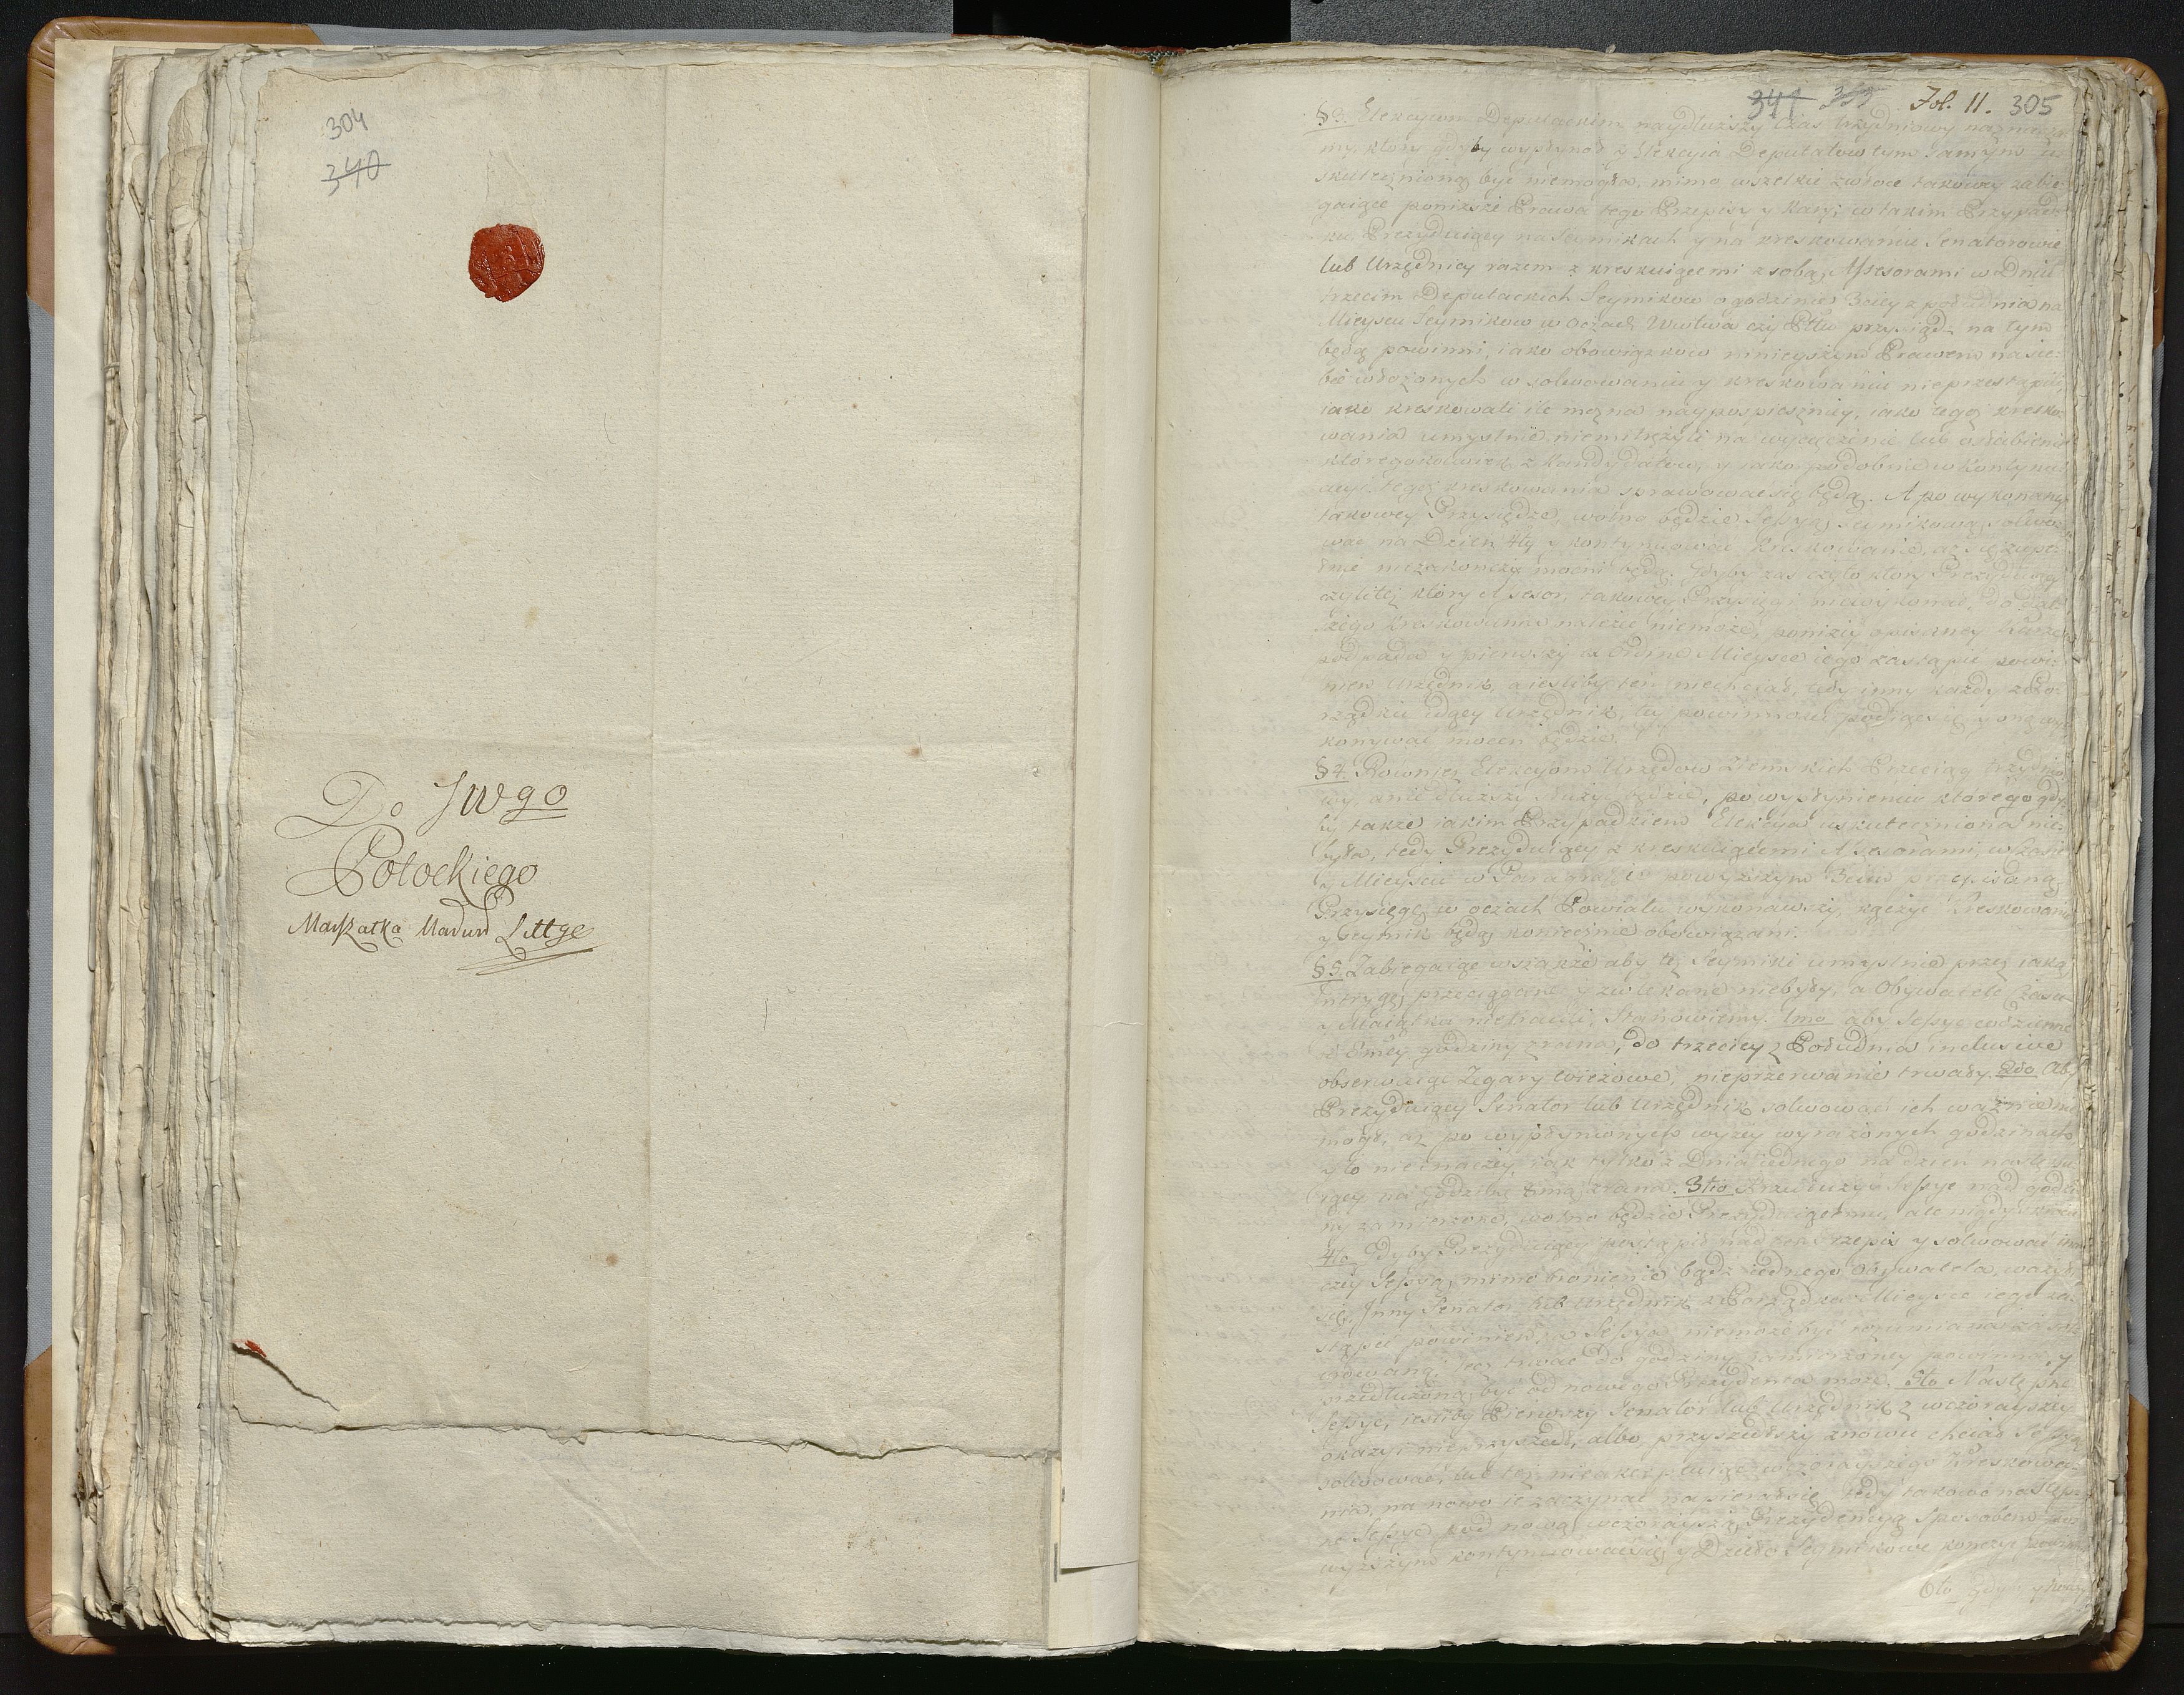 304
340
Do JWgo
Potockiego
Marszałka Nadwo Littgo
341 353 Fol. 11. 305
§ 3. Elekcyom Deputackim naydłuższy czas trzydniowy naznacza
my, ktory gdyby wypłynął y Elekcyia Deputatow tym samym u
skutecznioną być niemogła, mimo wszelkie zwłoce takowey zabie
gaiące poniższe Prawa tego Przepisy y Kary; w takim Przypad
ku Prezyduiący na Seymikach y na kreskowaniu Senatorowie
lub Urzędnicy razem z kreskuiącemi z sobą Assesorami w Dniu
trzecim Deputackich Seymikow o godzinie 3ciey z południa na
Mieyscu Seymikow w oczach Wwdztwa czy Pttu przysiądz na tym
będą powinni, iako obowiązkow ninieyszym Prawem na sie
bie włożonych w solwowaniu y kreskowaniu nieprzestąpili,
iako kreskowali ile można nayspieszniey, iako tegoż kresko
wania umyslnie niemitrężyli na wycieńczenie lub osłabienie
ktoregokolwiek z Kandydatow, y iako podobnie w kontynu
acyi tegoż kreskowania sprawować się będą. A po wykonaney
takowey Przysiędze, wolno będzie Sessyą Seymikową solwo
wać na Dzień 4ty y kontynuować kreskowanie, aż się zupeł
nie niezakończy mocni będą. Gdyby zas czyto ktory Prezyduiący
czyliteż ktory Assesor, takowey Przysięgi niewykonał, do dal
szego kreskowania należeć niemoże, poniżey opisaney Karze
podpada y pierwszy in Ordine Mieysce iego zastąpić powi
nien Urzędnik, a iesliby ten niechciał, tedy inny każdy z Po
rządku idący Urzędnik, tey powinności podiąć się y oną wy
konywać mocen będzie.
§ 4. Rownież Elekcyom Urzędow Ziemskich Przeciąg trzydnio
wy, a nie dłuższy służyć będzie, po wypłynieniu ktorego gdy
by także iakim Przypadkiem Elekcya uskuteczniona nie
była, tedy Prezyduiący z kreskuiącemi Assesorami, w czasie
y Mieyscu w Paragrafie powyższym 3cim przepisaną
Przysięgę w oczach Powiatu wykonawszy, kączyć kreskowanie
y Seymik będą koniecznie obowiązani.
§ 5. Zabiegaiąc wszakże aby też Seymiki umyslnie przez iaką
intrygę przeciągane y zwlekane niebyły, a Obywatele Czasu
y Maiątku nietracili, Stanowiemy. 1mo aby Sessye codzienne
z 8mey godziny zrana, do trzeciey z Południa inclusive
obserwuiąc Zegary wieżowe, nieprzerwanie trwały. 2do Aby
Prezyduiący Senator lub Urzędnik solwować ich ważnie nie
mogł, aż po wypłynionych wyżey wyrażonych godzinach
y to nieinaczey iak tylko z Dnia iednego na dzień nastepu
iący na godzinę 8mą zrana. 3tio Przedłużyć Sessye nad godzi
ny zamierzone, wolno będzie Prezyduiącemu, ale nigdy skrócić
4to Gdyby Prezyduiący postąpił nad ten Przepis y solwować ina
czey Sessyą, mimo bronienie bądź iednego Obywatela, ważył
się, Inny Senator lub Urzędnik z Porządku Mieysce iego za
stąpić powinien, a Sessya niemoże być rozumiana za sol
wowaną, lecz trwać do godziny zamierzoney powinna, y
przedłużoną być od nowego Prezydenta może. 5to Następne
Sessye, iesliby Pierwszy Senator lub Urzędnik z wczorayszey
okazyi nieprzyszedł, albo przyszedłszy znowu chciał Sessyą
solwować, lub też nieakceptuiąc wczorayszego kreskowa
nia, na nowo ie zaczynać napierał się, tedy takowe następ
ne Sessye pod nową wczorayszą Prezydencyą sposobem po
wyższym kontynuować się y Dzieło Seymikowe kończyć powinny
6to Gdyby y kresk